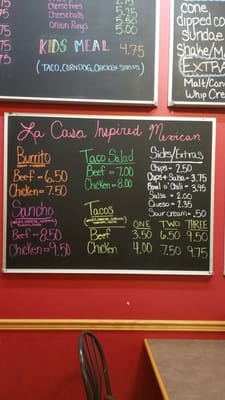 Cheese Fries
Cheeseballs
Onion Rings 5.00
KIDS MEAL 4.75
(TACO, CORN DOG, CHICKEN
cone
dipped co
sundae
Shake/M
EXTRA
Malt/
Whip Cre
La Casa Inspired Mexican
Burrito
Beef - 6.50
Chicken - 7.50
Sancho
Beef - 8.50
Chicken - 9.50
Taco Salad
Beef - 7.00
Chicken - 8.00
Tacos
ONE TWO THREE
Beef 3.50 6.50 9.50
Chicken 4.00 7.50 9.75
Sides/Extras
Chips - 2.50
Chips + Salsa - 3.75
Bowl o' Chili - 3.95
Salsa - 2.00
Queso - 2.35
Sour cream - .50